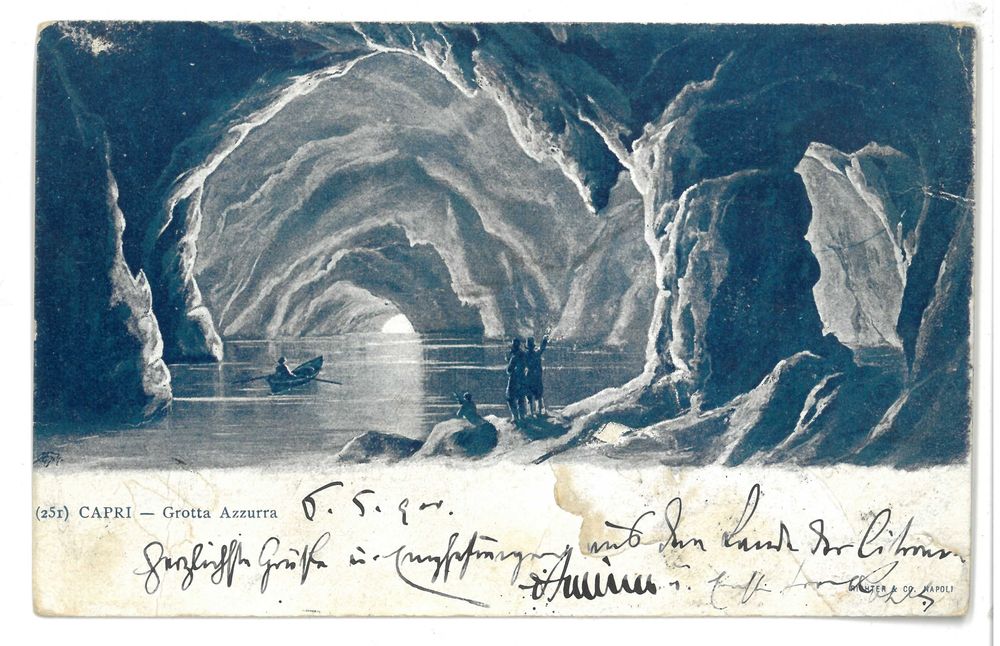 (251) CAPRI — Grotta Azzurra
6. 5. 900.
Herzlichste Grüße u. Empfehlungen aus dem Lande der Citronen
u.
RICHTER & CO. NAPOLI